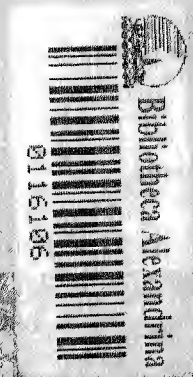 Bibliotheca Alexandrina
0116106